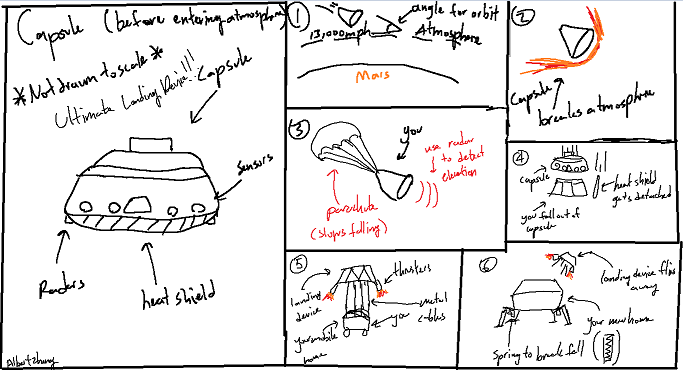 Capsule (before entering atmosphere)
*Not drawn to scale*
Ultimate Landing Device!!!
Capsule
Sensors
Radars
heat shield
Albert Zhung
1
angle for orbit
13,000mph
Atmosphere
Mars
2
Capsule
breaks atmosphere
3
you
use radar
to detect
elevation
parachute
(slows falling)
4
capsule
heat shield
gets detached
you fall out of
capsule
5
thrusters
landing
device
metal
cables
you
your mobile
home
6
landing device flies
away
your new home
Spring to break fall